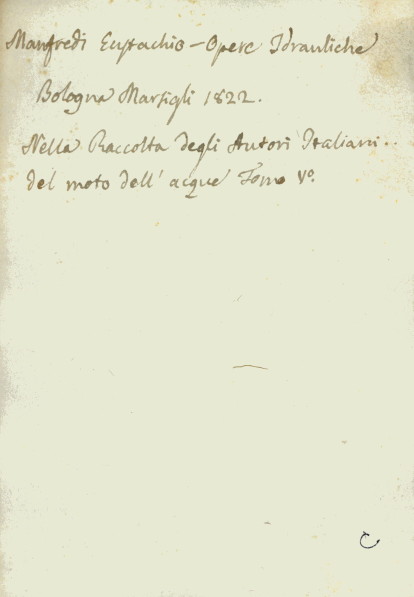 Manfredi Eustachio - Opere Idrauliche
Bologna Marsigli 1822.
Nella Raccolta degli Autori Italiani..
del moto dell' acque Tomo Vº.